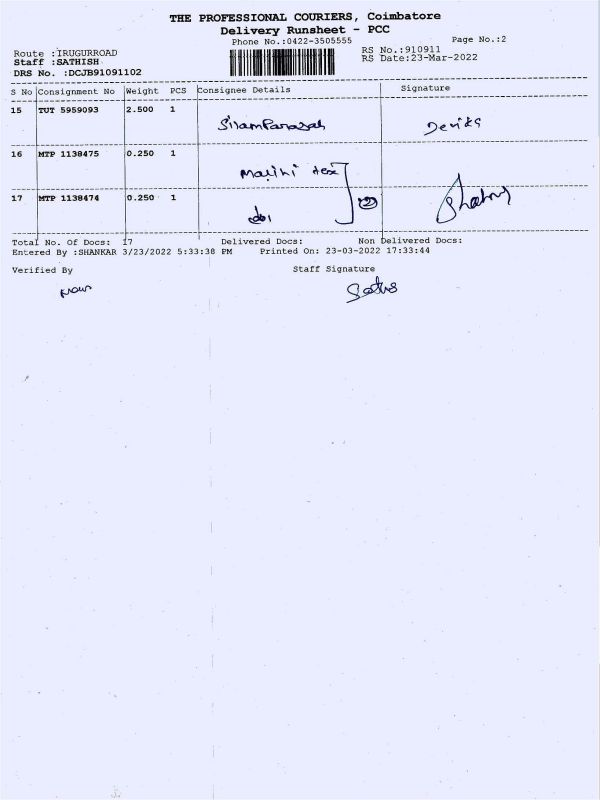 THE PROFESSIONAL COURIERS, Coimbatore
Delivery Runsheet - PCC
Phone No.:0422-3505555 Page No.:2
Route :IRUGURROAD RS No.:910911
Staff :SATHISH RS Date:23-Mar-2022
DRS No. :DCJB91091102
S No Consignment No Weight PCS Consignee Details Signature
15 TUT 5959093 2.500 1
Devika
16 MTP 1138475 0.250 1
Malini tex
17 MTP 1138474 0.250 1
do1 2
Total No. Of Docs: 17 Delivered Docs: Non Delivered Docs:
Entered By :SHANKAR 3/23/2022 5:33:38 PM Printed On: 23-03-2022 17:33:44
Verified By Staff Signature